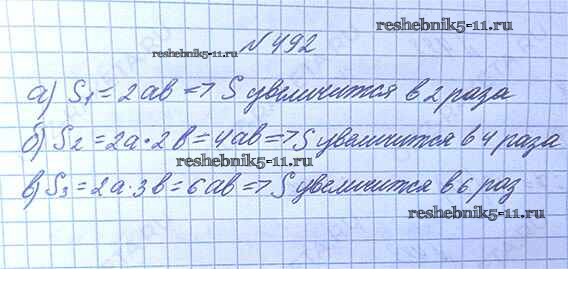 reshebnik5-11.ru
№492
reshebnik5-11.ru
а) S₁ = 2ab => S увеличится в 2 раза
б) S₂ = 2a·2b = 4ab => S увеличится в 4 раза
reshebnik5-11.ru
в) S₃ = 2a·3b = 6ab => S увеличится в 6 раз
reshebnik5-11.ru